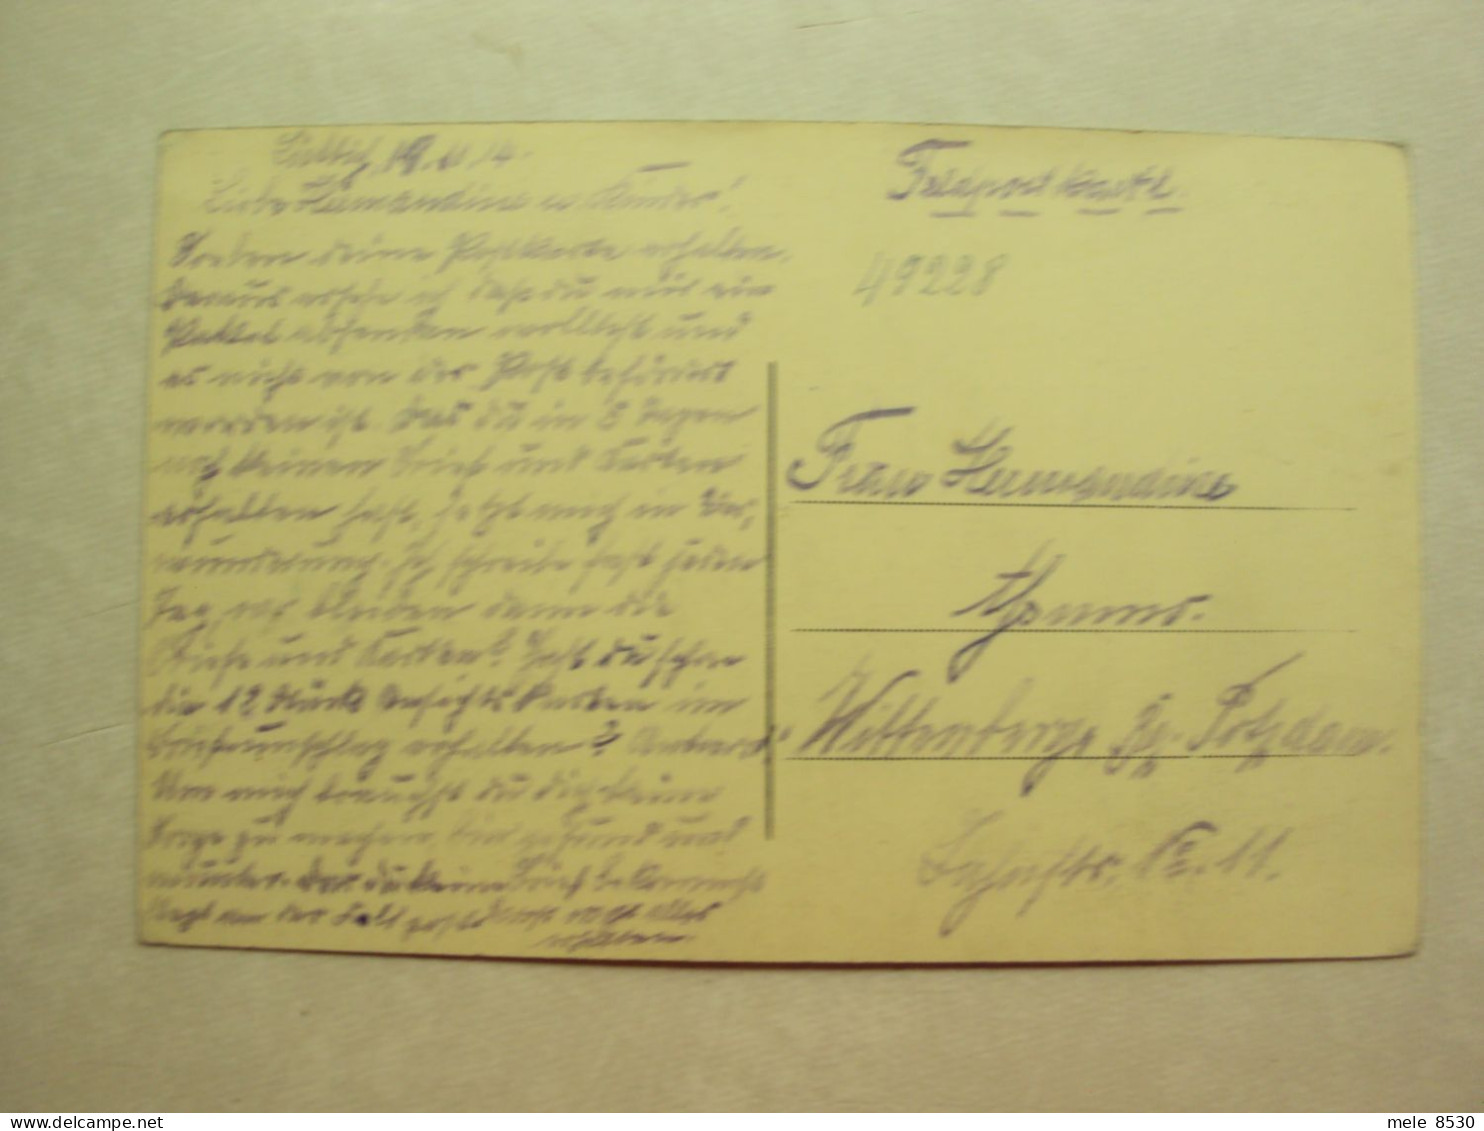 Lüttich, 19.11.14.
Liebe Hermandine u Kinder!
Soeben deine Postkarte erhalten.
daraus ersehe ich dass du nur ein
Paket absenden wolltest und
es nicht von der Post befördert
worden ist. Das du in 8 Tagen
noch keinen Brief und Karten
erhalten hast, setzt mich in Ver-
wunderung. Ich schreibe fast jeden
Tag, wo bleiben denn die
Briefe und Karten? Hast du schon
die 12 Stück Ansichtskarten im
Briefumschlag erhalten? Antwort!
Um mich brauchst du dir keine
Sorge zu machen bin gesund und
munter. Das du keine Brief bekommst
liegt an der Feldpost
alles
erhalten.
Feldpostkarte.
49228
Frau Hermandine
Wittenberge Bz. Potzdam.
No. 11.
mele 8530